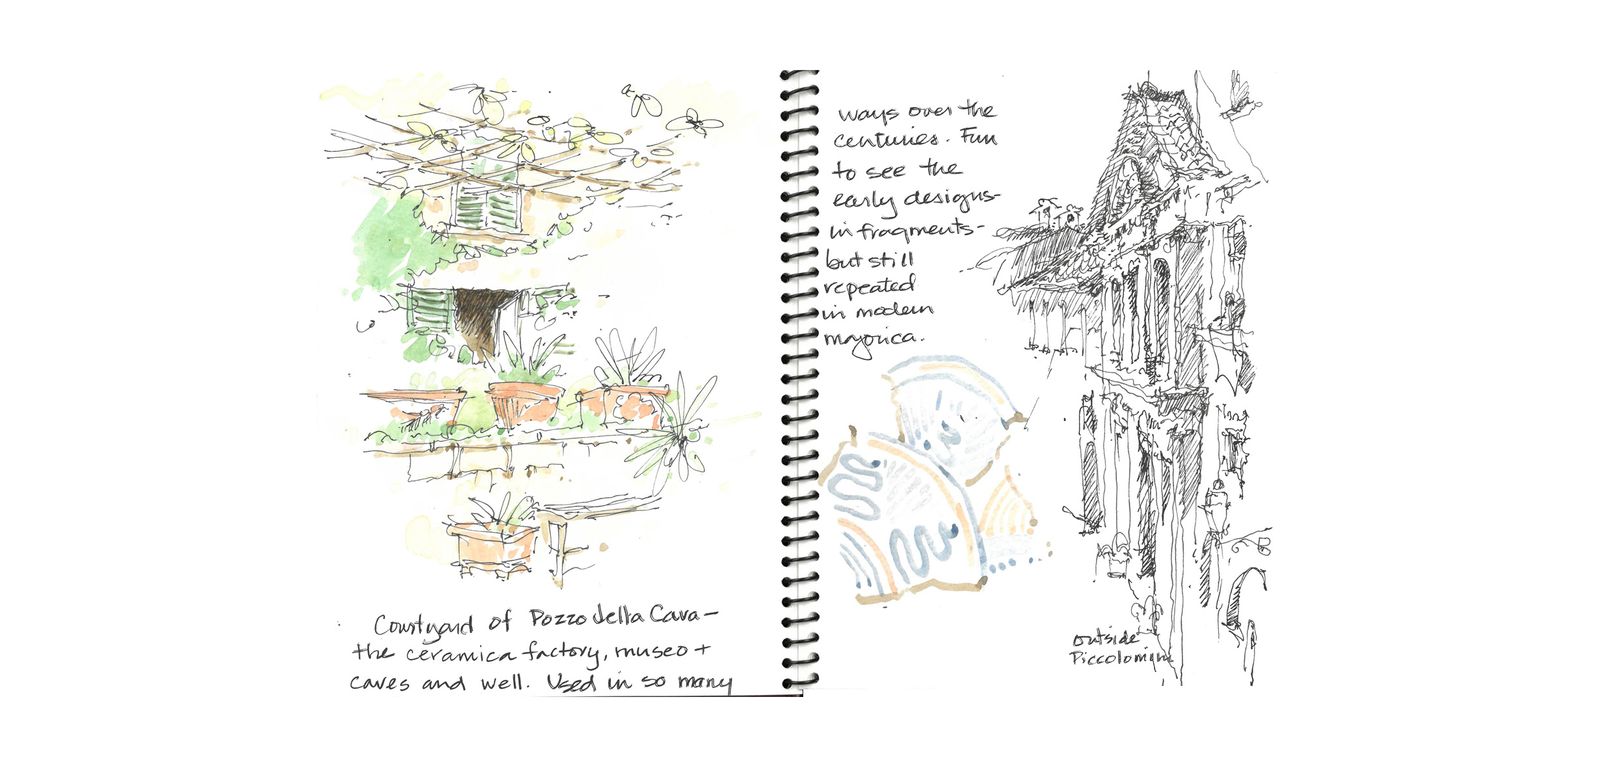 Courtyard of Pozzo della Cava –
the ceramica factory, museo +
caves and well. Used in so many
ways over the
centuries. Fun
to see the
early designs-
in fragments-
but still
repeated
in modern
majorica.
outside
Piccolomini